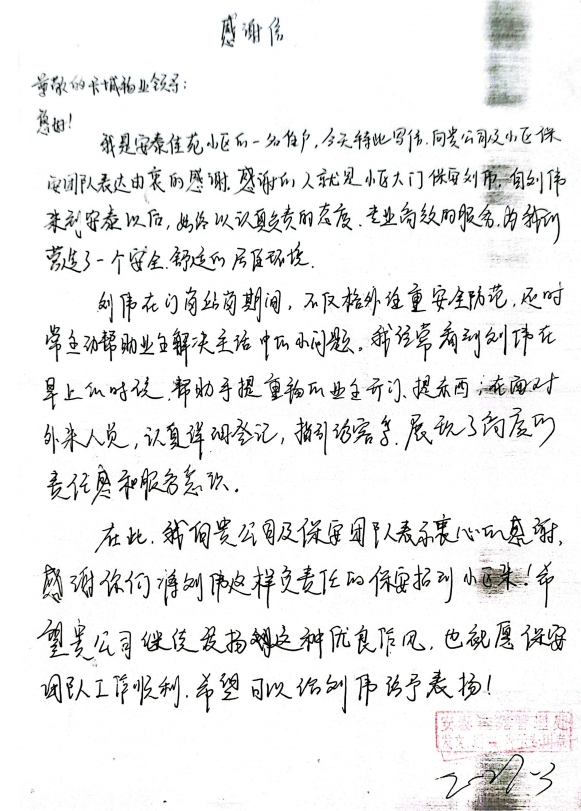 感谢信
尊敬的长城物业领导：
您好！
我是安泰佳苑小区的一名住户，今天特此写信，向贵公司及小区保
安团队表达由衷的感谢。感谢的人就是小区大门保安刘伟。自刘伟
来到安泰以后，始终以认真负责的态度、专业高效的服务，为我们
营造了一个安全、舒适的居住环境。
刘伟在门岗站岗期间，不仅格外注重安全防范，还时
常主动帮助业主解决生活中的小问题。我经常看到刘伟在
早上 时候，帮助手提重物的业主开门、提东西，在面对
外来人员，认真详细登记，指引访客等。展现了高度的
责任感和服务意识。
在此，我向贵公司及保安团队表示衷心的感谢，
感谢你们将刘伟这样负责任的保安招到小区来！希
望贵公司继续发扬这种优良作风，也祝愿保安
团队工作顺利，希望可以给刘伟给予表扬！